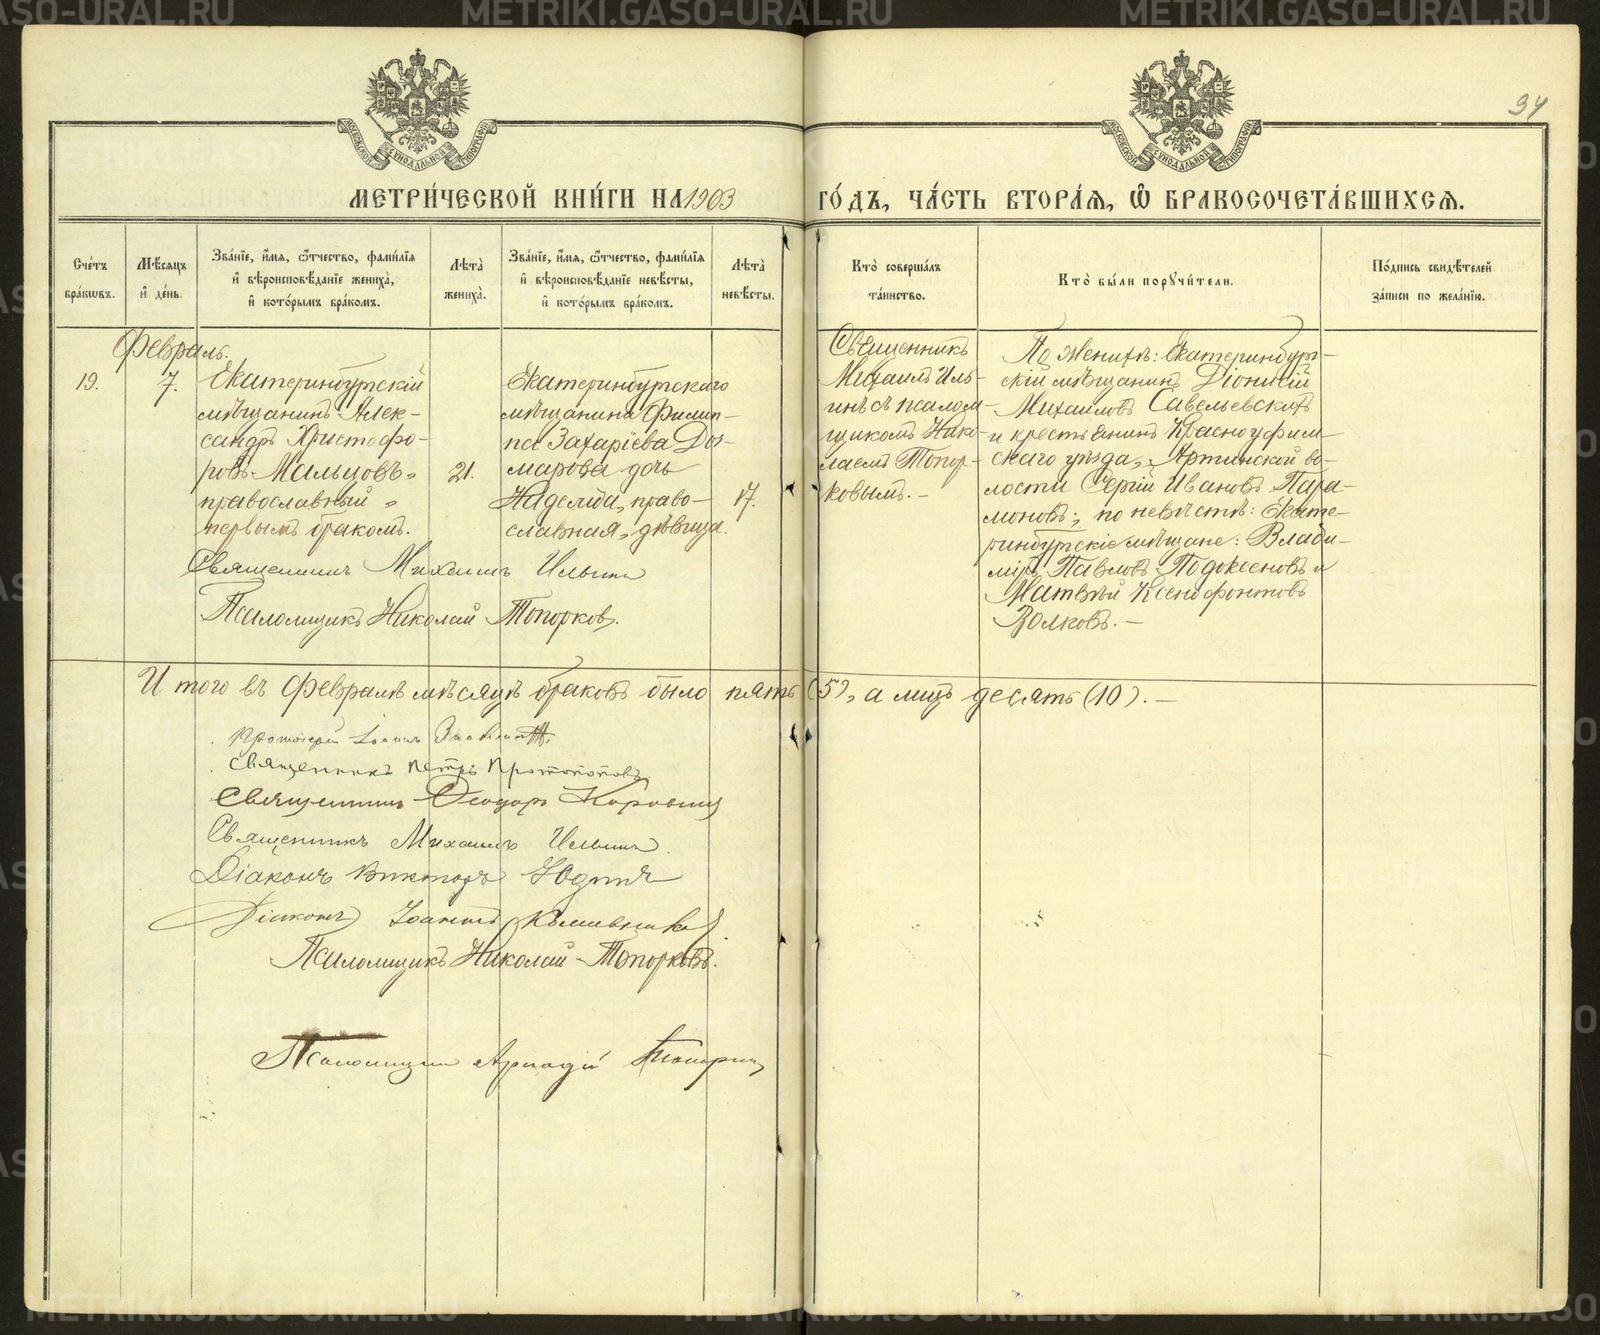 94
МЕТРИ́ЧЕСКОЙ КНИ́ГИ НА 1903 ГО́ДЪ, ЧА́СТЬ ВТОРА́Я, Ѡ БРАКОСОЧЕТА́ВШИХСЯ.
Сче́тъ бра́кѡвъ.
Мѣ́сѧцъ и҆ де́нь.
Зва́нїе, и҆́мѧ, ѻ҆́тчество, фамѝлїѧ
и҆ вѣроисповѣ́данїе жениха̀,
и҆ кото́рымъ бра́комъ.
Лѣта̀ жениха̀.
Зва́нїе, и҆́мѧ, ѻ҆́тчество, фамѝлїѧ
и҆ вѣроисповѣ́данїе невѣ́сты,
и҆ кото́рымъ бра́комъ.
Лѣта̀ невѣ́сты.
Кто̀ соверша́лъ
та́инство.
Кто̀ бы́ли порꙋчи́тели.
По́дпись свидѣ́телей
за́писи по жела́нїю.
Февраль.
19.
7.
Екатеринбургскій
мѣщанинъ Алек-
сандръ Христофо-
ровъ Мальцовъ,
православный,
первымъ бракомъ.
21.
Екатеринбургскаго
мѣщанина Филип-
па Захаріева До-
марова дочь
Надежда, право-
славная, дѣвица.
17.
Священникъ
Михаилъ Иль-
инъ съ псалом-
щикомъ Нико-
лаемъ Топор-
ковымъ. —
По женихѣ: Екатеринбург-
скій мѣщанинъ Діонисій
Михаиловъ Савельевскихъ
и крестьянинъ Красноуфим-
скаго уѣзда, Артинской во-
лости Сергій Ивановъ Пара-
моновъ; по невѣстѣ: Екате-
ринбургскіе мѣщане: Влади-
міръ Павловъ Подоксеновъ и
Матвѣй Ксенофонтовъ
Волковъ. —
Священникъ Михаилъ Ильинъ
Псаломщикъ Николай Топорковъ.
Итого въ Февралѣ мѣсяцѣ браковъ было пять (5), а лицъ десять (10). —
Протоіерей Іоаннъ Знаменскій.
Священникъ Петръ Протопоповъ
Священникъ Ѳеодоръ Коровинъ
Священникъ Михаилъ Ильинъ
Діаконъ Викторъ Юдинъ
Діаконъ Іоаннъ
Псаломщикъ Николай Топорковъ.
Псаломщикъ Аркадій
МОСКОВСКОЙ СУНОДАЛЬНОЙ ТИПОГРАФІИ
МОСКОВСКОЙ СУНОДАЛЬНОЙ ТИПОГРАФІИ
METRIKI.GASO-URAL.RU